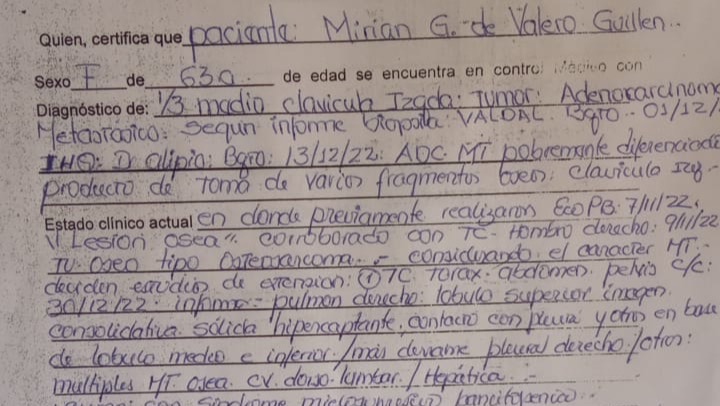 Quien, certifica que paciente: Mirian G. de Valero Guillen.
Sexo F de 63a. de edad se encuentra en control Médico con
Diagnóstico de: 1/3 medio clavicula Izqda: Tumor: Adenocarcinoma
Metastásico: segun informe biopsia: VALDAL. Bqto.. 01/12/
IHQ: Dr alipio: Bqto: 13/12/22: ADC. MT pobremente diferenciado
producto de toma de varios fragmentos oseos: clavicula Izq.-
Estado clínico actual en donde previamente realizaron Eco PB: 7/11/22.
"Lesión osea". corroborado con TC- Hombro derecho: 9/11/22
TU. Oseo tipo Osteosarcoma.- considerando el caracter MT.-
deciden estudios de extension: ① TC. Torax. abdomen. pelvis c/c:
30/12/22: informe- pulmon derecho: lobulo superior imagen
consolidativa sólida hipercaptante, contacto con pleura y otros en base
de lobulo medio e inferior/más derrame pleural derecho/otros:
multiples MT. osea. cv. dorso-lumbar./Hepática.-
con Sindrome